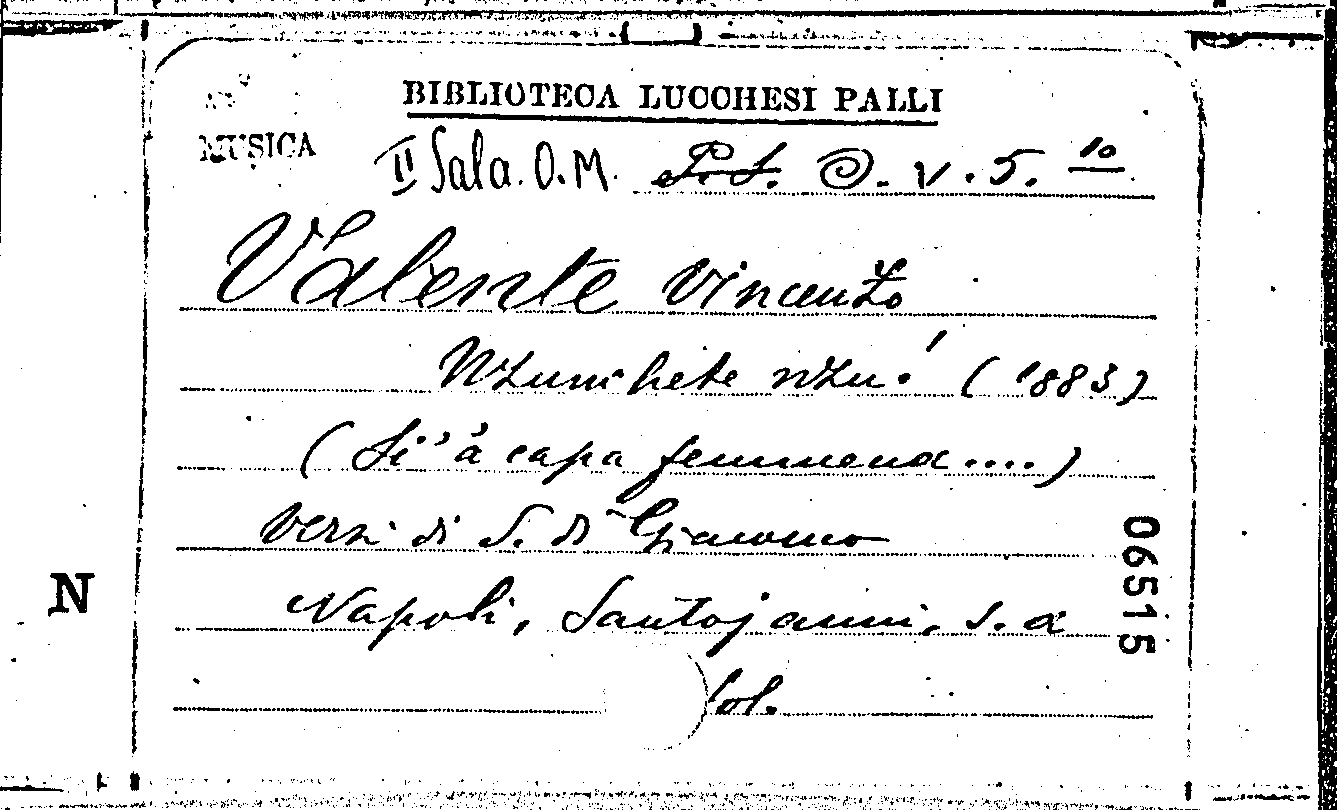 BIBLIOTECA LUCCHESI PALLI
MUSICA
II Sala. O.M. P.S. O. v. 5. 10
Valente Vincenzo
Nzunchete nzu! (1883)
(Si' 'a capa femmena....)
Versi di S. di Giacomo
Napoli, Santojanni, s. a
fol.
06515
N